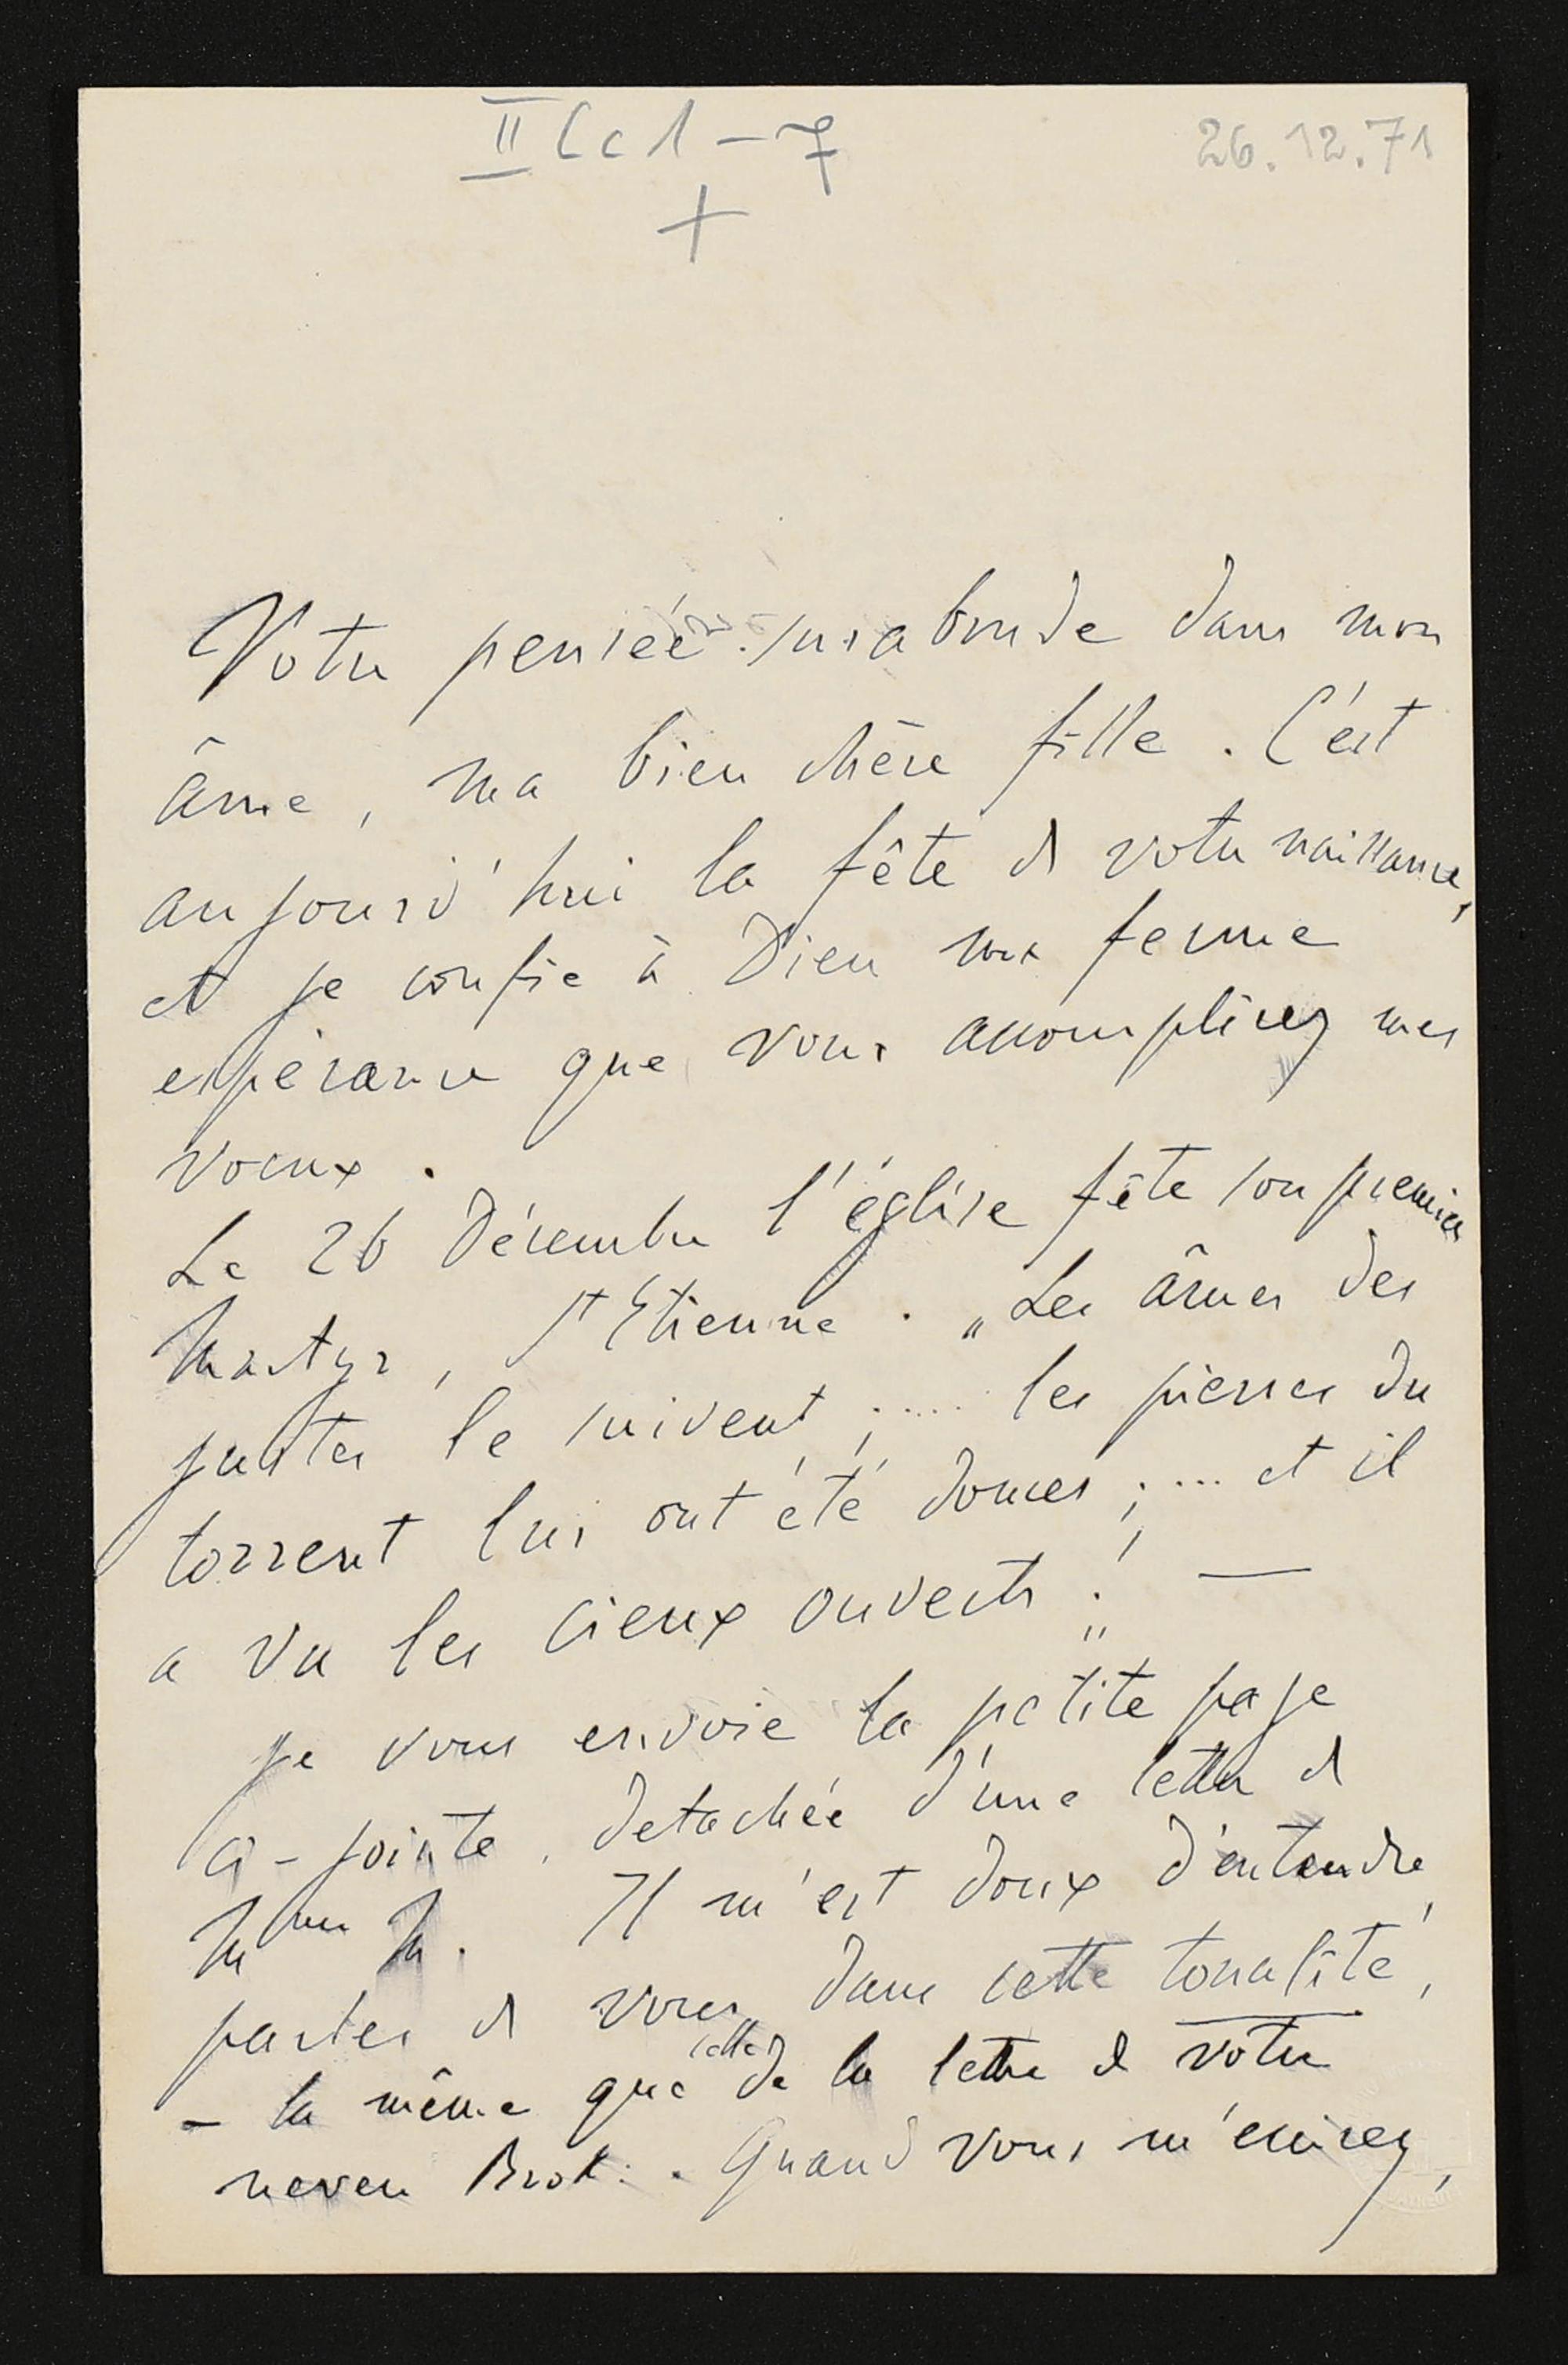 II Cc 1 – 7
26.12.71
+
Votre pensée surabonde dans mon
âme, ma bien chère fille. C'est
aujourd'hui la fête de votre naissance,
et je confie à Dieu ma ferme
espérance que vous accomplirez mes
voeux.
Le 26 Décembre l'église fête son premier
Martyr, St Etienne. „Les âmes des
justes le suivent; .... les pierres du
torrent lui ont été douces; ... et il
a vu les cieux ouverts!" —
Je vous envoie la petite page
ci-jointe, detachée d'une lettre de
Mme M. Il m'est doux d'entendre
parler de vous, dans cette tonalité,
– la même que celle de la lettre de votre
neveu Brok. . Quand vous m'écrirez,